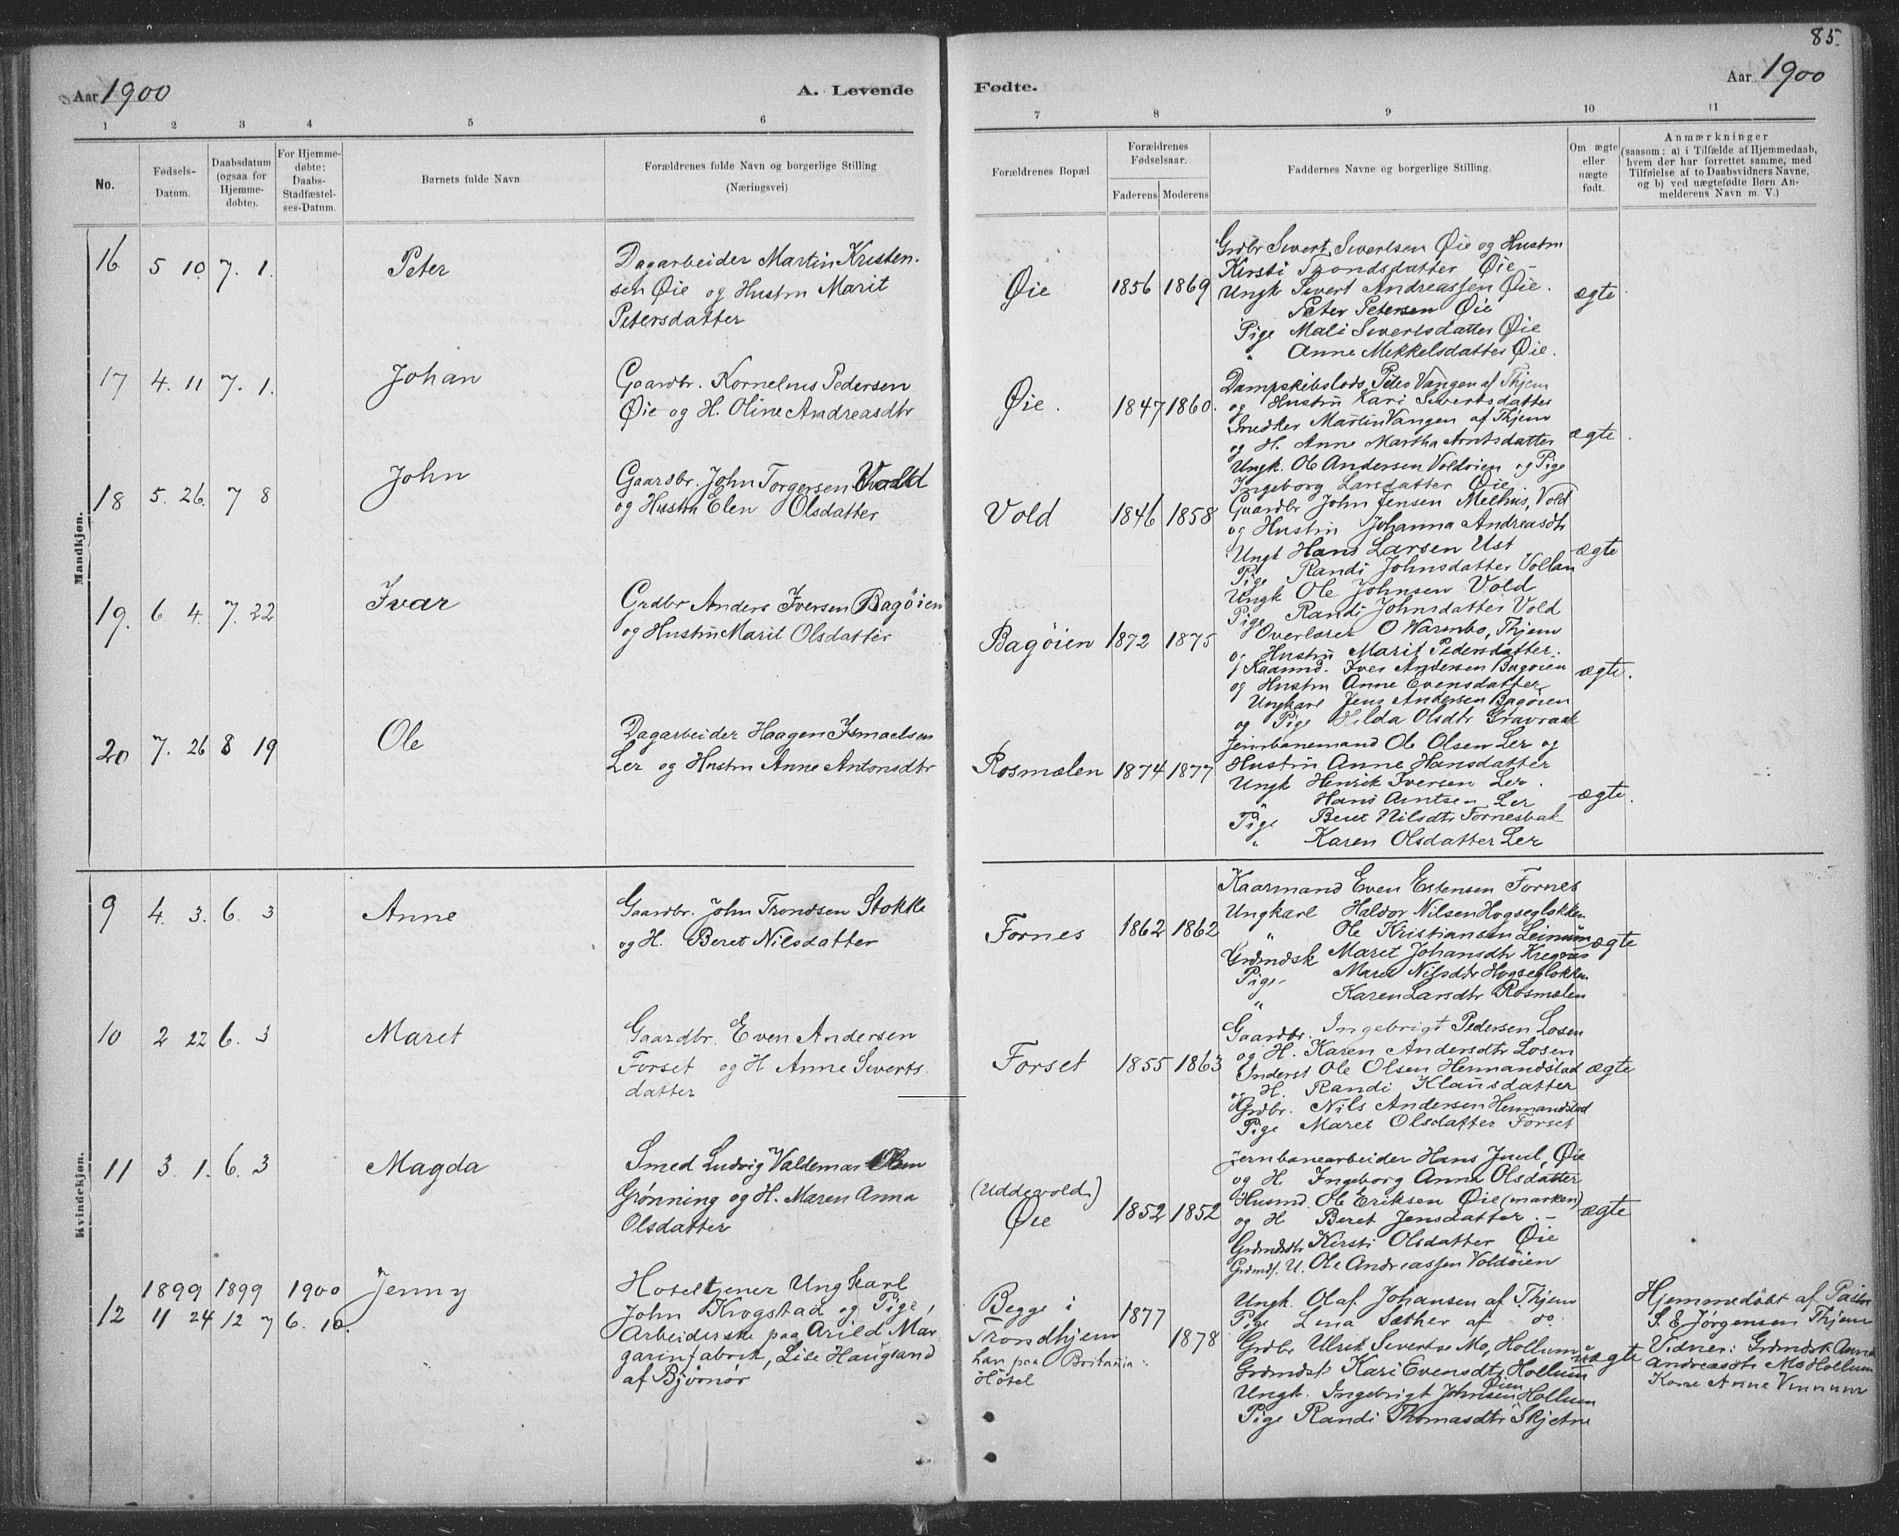 85.
Aar 1900
A. Levende
Fødte.
Aar 1900
1 2 3 4 5 6
7 8 9 10 11
No.
Fødsels-
Datum.
Daabsdatum
(ogsaa for
Hjemme-
døbte).
For Hjemme-
døbte:
Daabs-
Stadfæstel-
ses-Datum.
Barnets fulde Navn
Forældrenes fulde Navn og borgerlige Stilling
(Næringsvei)
Forældrenes Bopæl
Forældrenes
Fødselsaar.
Faderens Moderens
Faddernes Navne og borgerlige Stilling.
Om ægte
eller
uægte
født.
Anmærkninger
(saasom: a) i Tilfælde af Hjemmedaab,
hvem der har forrettet samme, med
Tilføielse af to Daabsvidners Navne,
og b) ved uægtefødte Børn An-
melderens Navn m. V.)
Mandkjøn.
16 5 10. 7. 1. Peter
Dagarbeider Martin Kristen-
sen Øie og Hustru Marit
Petersdatter
Øie 1856 1869
Grdbr Sivert Sivertsen Øie og Hustru
Kirsti Trondsdatter Øie -
Ungk Sivert Andreassen Øie.
Peter Petersen Øie
Pige Mali Sivertsdatter Øie
" Anne Mekkelsdatter Øie.
ægte
17 4. 11 7. 1. Johan
Gaardbr. Kornelius Pedersen
Øie og H. Oline Andreasdtr
Øie. 1847 1860.
Dampskibslods Peter Vangen af Thjem
og Hustru Kari Sivertsdatter
Snedker Martin Vangen af Thjem
og H. Anne Martha Arntsdatter
Ungk. Ole Andersen Voldøien og Pige
Ingeborg Larsdatter Øie.
ægte.
18 5. 26. 7 8 John
Gaardbr. John Torgersen Vold
og Hustru Elen Olsdatter
Vold 1846 1858
Gaardbr John Jensen Melhus, Vold
og Hustru Johanna Andreasdtr
Ungk Hans Larsen Ust
Pige Randi Johnsdatter Vollan
Ungk Ole Johnsen Vold
Pige Randi Johnsdatter Vold
ægte
19. 6 4. 7. 22 Ivar
Grdbr Anders Iversen Bagøien
og Hustru Marit Olsdatter
Bagøien 1872 1875
Overlærer O Warmbo, Thjem
og Hustru Marit Pedersdatter.
Kaarmd. Iver Andersen Bagøien
og Hustru Anne Evensdatter,
Ungkarl Jens Andersen Bagøien
og Pige Hilda Olsdtr Gravraak
ægte.
20 7. 26 8 19 Ole
Dagarbeider Haagen Ismaelsen
Ler og Hustru Anne Antonsdtr
Rosmælen 1874 1877
Jernbanemand Ole Olsen Ler og
Hustru Anne Hansdatter
Ungk Henrik Iversen Ler.
" Hans Arntsen Ler
Pige Beret Nilsdtr Fornesbak
" Karen Olsdatter Ler
ægte.
Kvindekjøn.
9 4. 3. 6. 3 Anne
Gaardbr. John Trondsen Stokke
og H. Beret Nilsdatter
Fornes 1862 1862
Kaarmand Even Estensen Fornes
Ungkarl Haldor Nilsen Hogseglokken
" Ole Kristiansen Leinum
Grdmdsk Maret Johansdtr Kregnes
Pige Maret Nilsdtr Hogseglokken
" Karen Larsdtr Rosmælen
ægte
10 2 22 6. 3 Maret
Gaardbr. Even Andersen
Forset og H Anne Siverts-
datter
Forset 1855 1863
Gaardbr. Ingebrigt Pedersen Losen
og H. Karen Andersdtr Losen
Underst Ole Olsen Hermandstad
og H. Randi Klausdatter
Grdbr. Nils Andersen Hermandstad
Pige Maret Olsdatter Forset
ægte
11 3. 1. 6. 3 Magda
Smed Ludvig Valdemar Olsen
Grønning og H. Maren Anna
Olsdatter
(Uddevolds)
Øie 1852 1852
Jernbanearbeider Hans Juul, Øie
og H. Ingeborg Anna Olsdatter
Husmd. Ole Eriksen Øie (marken)
og H Beret Jensdatter. -
Grdmdsk Kirsti Olsdatter Øie
Grdmds. U. Ole Andreassen Voldøien
ægte
12 1899 11 24 1899 12 7 1900 6. 10. Jenny
Hoteltjener Ungkarl
John Krogstad og Pige,
Arbeiderske paa Arild Mar-
garinfabrik, Lise Haugland
af Bjørnør
Begge i
Trondhjem
han paa Britania-
Hotel
1877
1878
Ungk. Olaf Johansen af Thjem
Pige Lena Sæther af do.
Grdbr Ulrik Sivertsen Mo, Hollum
Grdmdsk Kari Evensdtr Hollum
Ungk. Ingebrigt Johnsen Øien Hollum
Pige Randi Thomasdtr Skjetne
uægte
Hjemmedøbt af Pastor
S. E. Jørgensen Thjem
Vidner: Grdmdsk Anna
Andreasdtr Mo Hollum
Kone Anne Vinnum